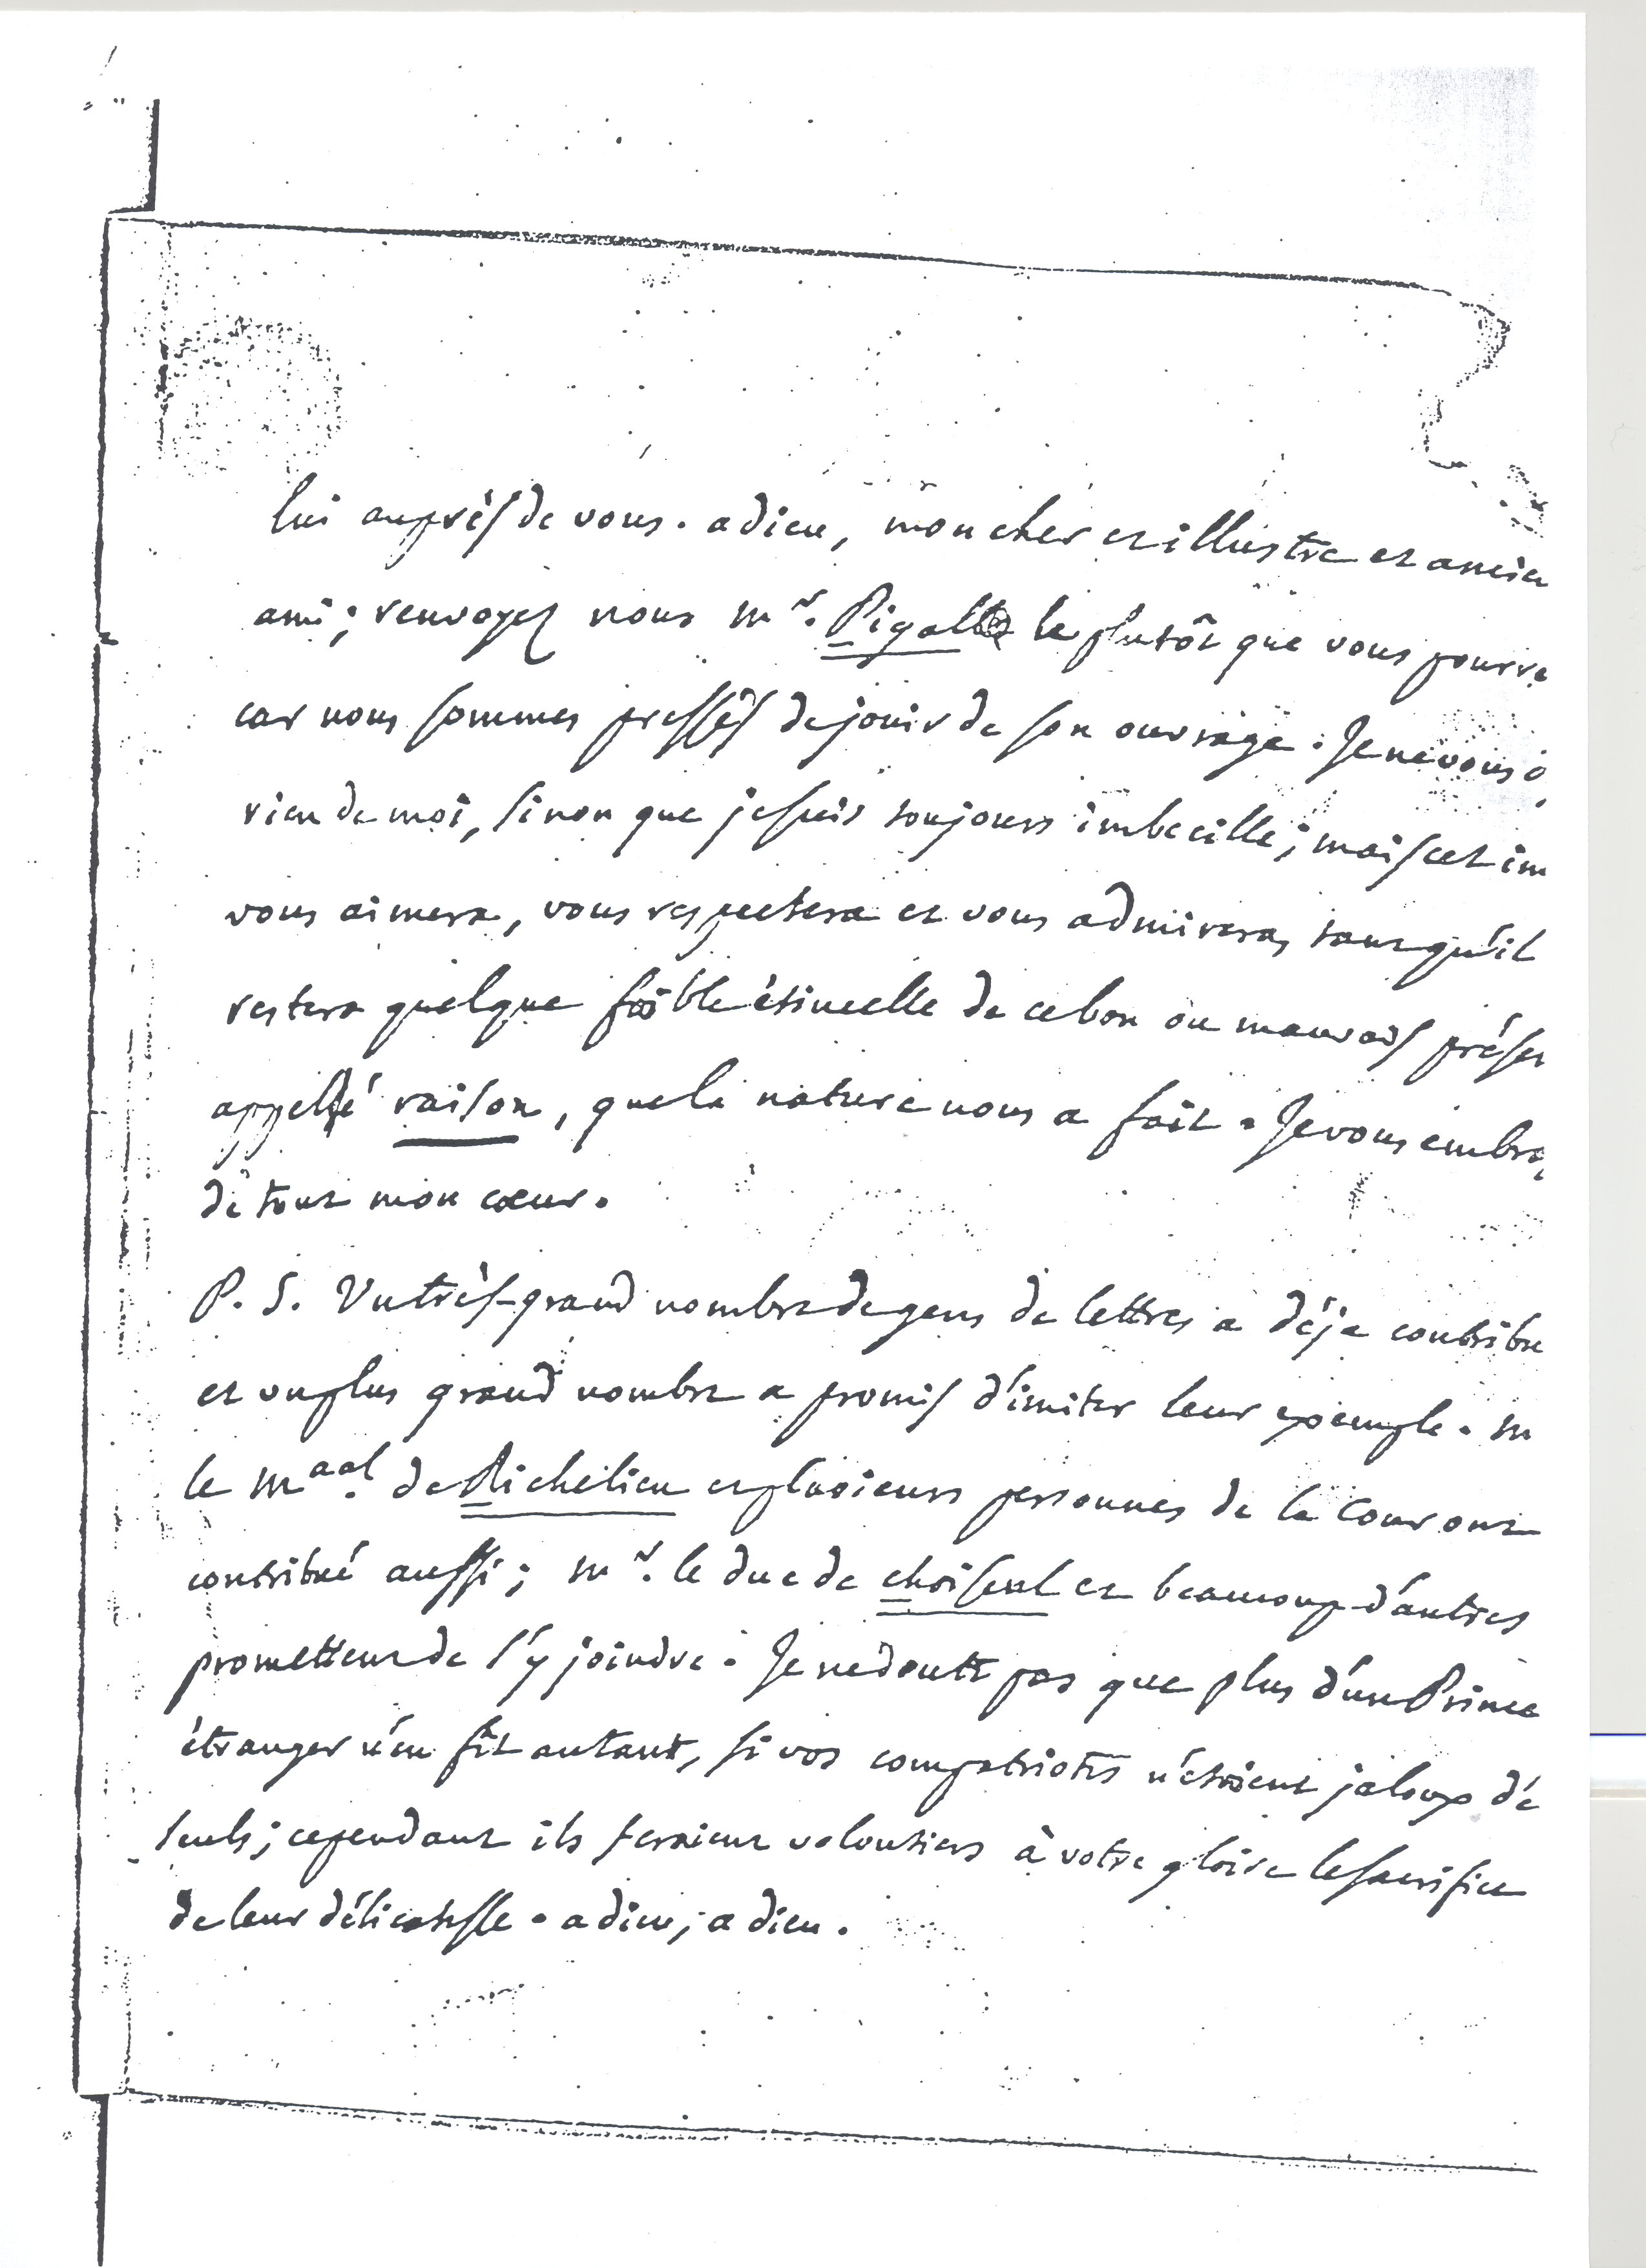 lui auprès de vous. adieu, mon cher et illustre et ancien
ami; renvoyez nous mr. Pigalle le plutôt que vous pourre
car nous sommes pressés de jouir de son ouvrage. Je ne vous d
rien de moi, sinon que je suis toujours imbecille; mais cet im
vous aimera, vous respectera et vous admirera, tant qu'il
restera quelque foible étincelle de ce bon ou mauvais présen
appellé raison, que la nature nous a fait. Je vous embra
de tout mon cœur.
P. S. Un très-grand nombre de gens de lettres a déja contribu
et un plus grand nombre a promis d'imiter leur exemple. m
le maal. de Richelieu et plusieurs personnes de la Cour ont
contribué aussi; mr. le duc de choiseul et beaucoup d'autres
promettent de s'y joindre. Je ne doute pas que plus d'un Prince
étranger n'en fît autant, si vos compatriotes n'étoient jaloux d'ê
seuls; cependant ils feroient volontiers à votre gloire le sacrifice
de leur délicatesse. adieu, adieu.